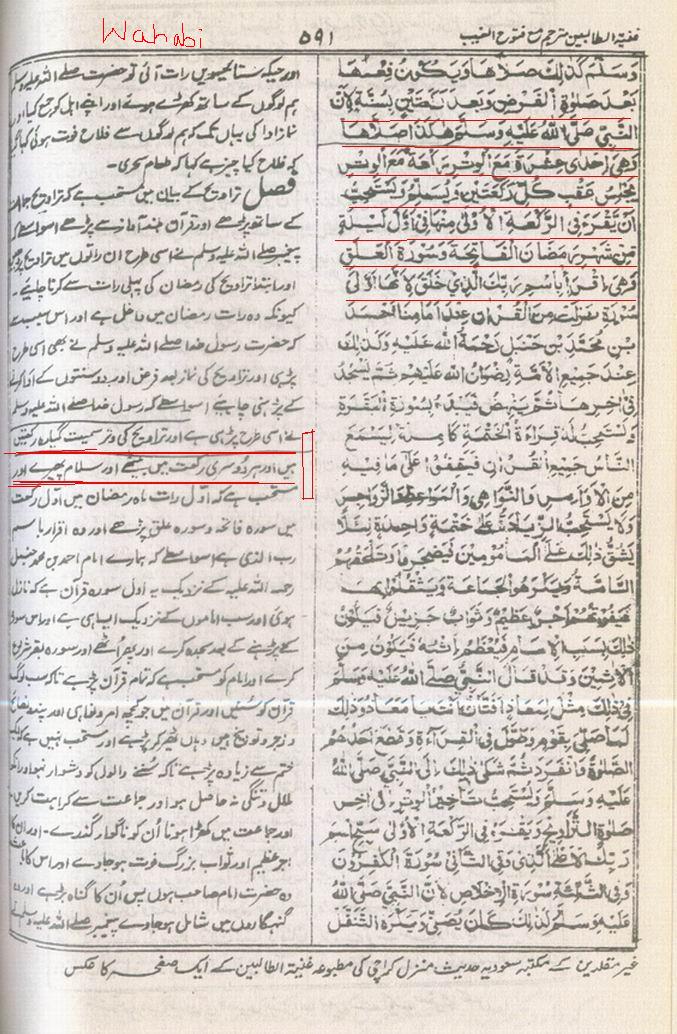 Wahabi
۵۹۱
غنیۃ الطالبین مترجم مع فتوح الغیب
وَسَلَّمَ كَذٰلِكَ صَلَّاهَا وَيَكُوْنُ فِعْلُهَا
بَعْدَ صَلٰوةِ الْفَرْضِ وَبَعْدَ رَكْعَتَيْنِ لِسُنَّةٍ لِاَنَّ
النَّبِيَّ صَلَّى اللّٰهُ عَلَيْهِ وَسَلَّمَ هٰكَذَا صَلَّاهَا
وَهِيَ اِحْدٰى عَشْرَةَ مَعَ الْوِتْرِ رَكْعَةً مَعَ الْوِتْرِ
يَجْلِسُ عَقِبَ كُلِّ رَكْعَتَيْنِ وَيُسَلِّمُ وَيَسْتَحِبُّ
اَنْ يَقْرَءَ فِى الرَّكْعَةِ الْاُوْلٰى مِنْهَا فِىْ اَوَّلِ لَيْلَةٍ
مِنْ شَهْرِ رَمَضَانَ الْفَاتِحَةَ وَسُوْرَةَ الْعَلَقِ
وَهِيَ اِقْرَأْ بِاسْمِ رَبِّكَ الَّذِيْ خَلَقَ لِاَنَّهَا اَوَّلُ
سُوْرَةٍ نَزَلَتْ مِنَ الْقُرْاٰنِ عِنْدَ اِمَامِنَا اَحْمَدَ
بْنِ مُحَمَّدِ بْنِ حَنْبَلٍ رَحْمَةُ اللّٰهِ عَلَيْهِ وَكَذٰلِكَ
عِنْدَ جَمِيْعِ الْاَئِمَّةِ رِضْوَانُ اللّٰهِ عَلَيْهِمْ ثُمَّ يَسْجُدُ
فِىْ اٰخِرِهَا ثُمَّ يَنْهَضُ فَيَبْدَءُ بِسُوْرَةِ الْبَقَرَةِ
وَيَسْتَحِبُّ لَهُ قِرَاءَةُ الْخَتْمَةِ كَامِلَةً لِيَسْمَعَ
النَّاسُ جَمِيْعَ الْقُرْاٰنِ فَيَقِفُوْا عَلٰى مَا فِيْهِ
مِنَ الْاَوَامِرِ وَالنَّوَاهِىْ وَالْمَوَاعِظِ وَالزَّوَاجِرِ
وَلَا يَسْتَحِبُّ الزِّيَادَةُ عَلٰى خَتْمَةٍ وَاحِدَةٍ لِئَلَّا
يَشُقَّ ذٰلِكَ عَلَى الْمَامُوْمِيْنَ فَيَضْجَرُوْا وَتَلْحَقُهُمُ
السَّامَةُ وَيَكْرَهُوا الْجَمَاعَةَ وَيَتْقُلُوْا بِهَا
فَيَفُوْتُهُمْ اَجْرٌ عَظِيْمٌ وَثَوَابٌ جَزِيْلٌ فَيَكُوْنُ
ذٰلِكَ بِسَبَبِ الْاِمَامِ فَيَعْظُمُ اِثْمُهُ فَيَكُوْنُ مِنَ
الْاٰثِمِيْنَ وَقَدْ قَالَ النَّبِيُّ صَلَّى اللّٰهُ عَلَيْهِ وَسَلَّمَ
فِىْ ذٰلِكَ مِثْلَ لِمُعَاذٍ اَفَتَّانٌ اَنْتَ يَا مُعَاذُ وَذٰلِكَ
لَمَّا صَلّٰى بِقَوْمٍ وَطَوَّلَ فِى الْقِرَاءَةِ وَقَطَعَ اَحَدُهُمُ
الصَّلٰوةَ وَانْفَرَدَ ثُمَّ شَكٰى ذٰلِكَ اِلَى النَّبِيِّ صَلَّى اللّٰهُ
عَلَيْهِ وَسَلَّمَ وَيَسْتَحِبُّ تَاخِيْرُ الْوِتْرِ فِىْ اٰخِرِ
صَلٰوةِ التَّرَاوِيْحِ وَيَقْرَءُ فِى الرَّكْعَةِ الْاُوْلٰى سَبِّحِ اسْمَ
رَبِّكَ الْاَعْلَى الَّذِىْ وَفِى الثَّانِىْ سُوْرَةَ الْكَافِرُوْنَ
وَفِى الثَّالِثَةِ سُوْرَةَ الْاِخْلَاصِ لِاَنَّ النَّبِيَّ صَلَّى اللّٰهُ
عَلَيْهِ وَسَلَّمَ كَذٰلِكَ كَانَ يُصَلِّىْ وَيُكْرَهُ التَّنَفُّلُ
اور جبکہ ستائیسویں رات آئی تو حضرت صلے اللہ علیہ وسلم
ہم لوگوں کے ساتھ کھڑے ہوئے اور اپنے اہل کو جمع کیا اور
نماز ادا کی یہاں تک کہ ہم لوگوں سے فلاح فوت ہوئی کہا گیا
کہ فلاح کیا چیز ہے کہا کہ طعام سحری۔
فصل تراویح کے بیان میں مستحب ہے کہ تراویح جماعت
کے ساتھ پڑھے اور قرآن بلند آواز سے پڑھے اسواسطے کہ
پیغمبر صلے اللہ علیہ وسلم نے اسی طرح ان راتوں میں تراویح پڑھیں
اور ابتدا تراویح کی رمضان کی پہلی رات سے کرنا چاہیے۔
کیونکہ وہ رات رمضان میں داخل ہے اور اس سبب سے
کہ حضرت رسول خدا صلے اللہ علیہ وسلم نے بھی اسی طرح
پڑھی اور تراویح کی نماز بعد فرض اور دو سنتوں کے ادا کرنے
کے پڑھنی چاہیے اسواسطے کہ رسول خدا صلے اللہ علیہ وسلم
نے اسی طرح پڑھی ہے اور تراویح کی وتر سمیت گیارہ رکعتیں
ہیں اور ہر دوسری رکعت میں بیٹھے اور سلام پھیرے اور
مستحب ہے کہ اوّل رات ماہ رمضان میں اوّل رکعت
میں سورہ فاتحہ و سورہ علق پڑھے اور وہ اقرا باسم
رب الذی ہے اسواسطے کہ ہمارے امام احمد بن محمد حنبل
رحمۃ اللہ علیہ کے نزدیک یہ اول سورہ قرآن ہے کہ نازل
ہوئی اور سب اماموں کے نزدیک ایسا ہی ہے اور اس سورہ
کے پڑھنے کے بعد سجدہ کرے اور پھر اُٹھے اور سورہ بقر شروع
کرے اور امام کو مستحب ہے کہ تمام قرآن پڑھے تاکہ سب لوگ
قرآن کو سنیں اور قرآن میں جو کچھ امر و نواہی اور پند و نصائح
و زجر و توبیخ ہیں وہاں ٹھہر کر پڑھے اور مستحب نہیں ہے کہ ایک
ختم سے زیادہ پڑھے تاکہ سننے والوں کو دشوار نہو اور انکو
ملال و تنگی نہ حاصل ہو اور جماعت سے کراہت کریں۔
اور جماعت میں کھڑا ہونا اُن کو ناگوار گذرے۔ اور ان کا
اجر عظیم اور ثواب بزرگ فوت ہو جاوے اور اس کا باعث
وہ حضرت امام صاحب ہوں پس اُن کا گناہ بڑھے اور وہ
گنہگاروں میں شامل ہو جاوے پیغمبر صلے اللہ علیہ وسلم نے
غیر مقلدین کے مکتبہ سعودیہ حدیث منزل کراچی کی مطبوعہ غنیۃ الطالبین کے ایک صفحہ کا عکس